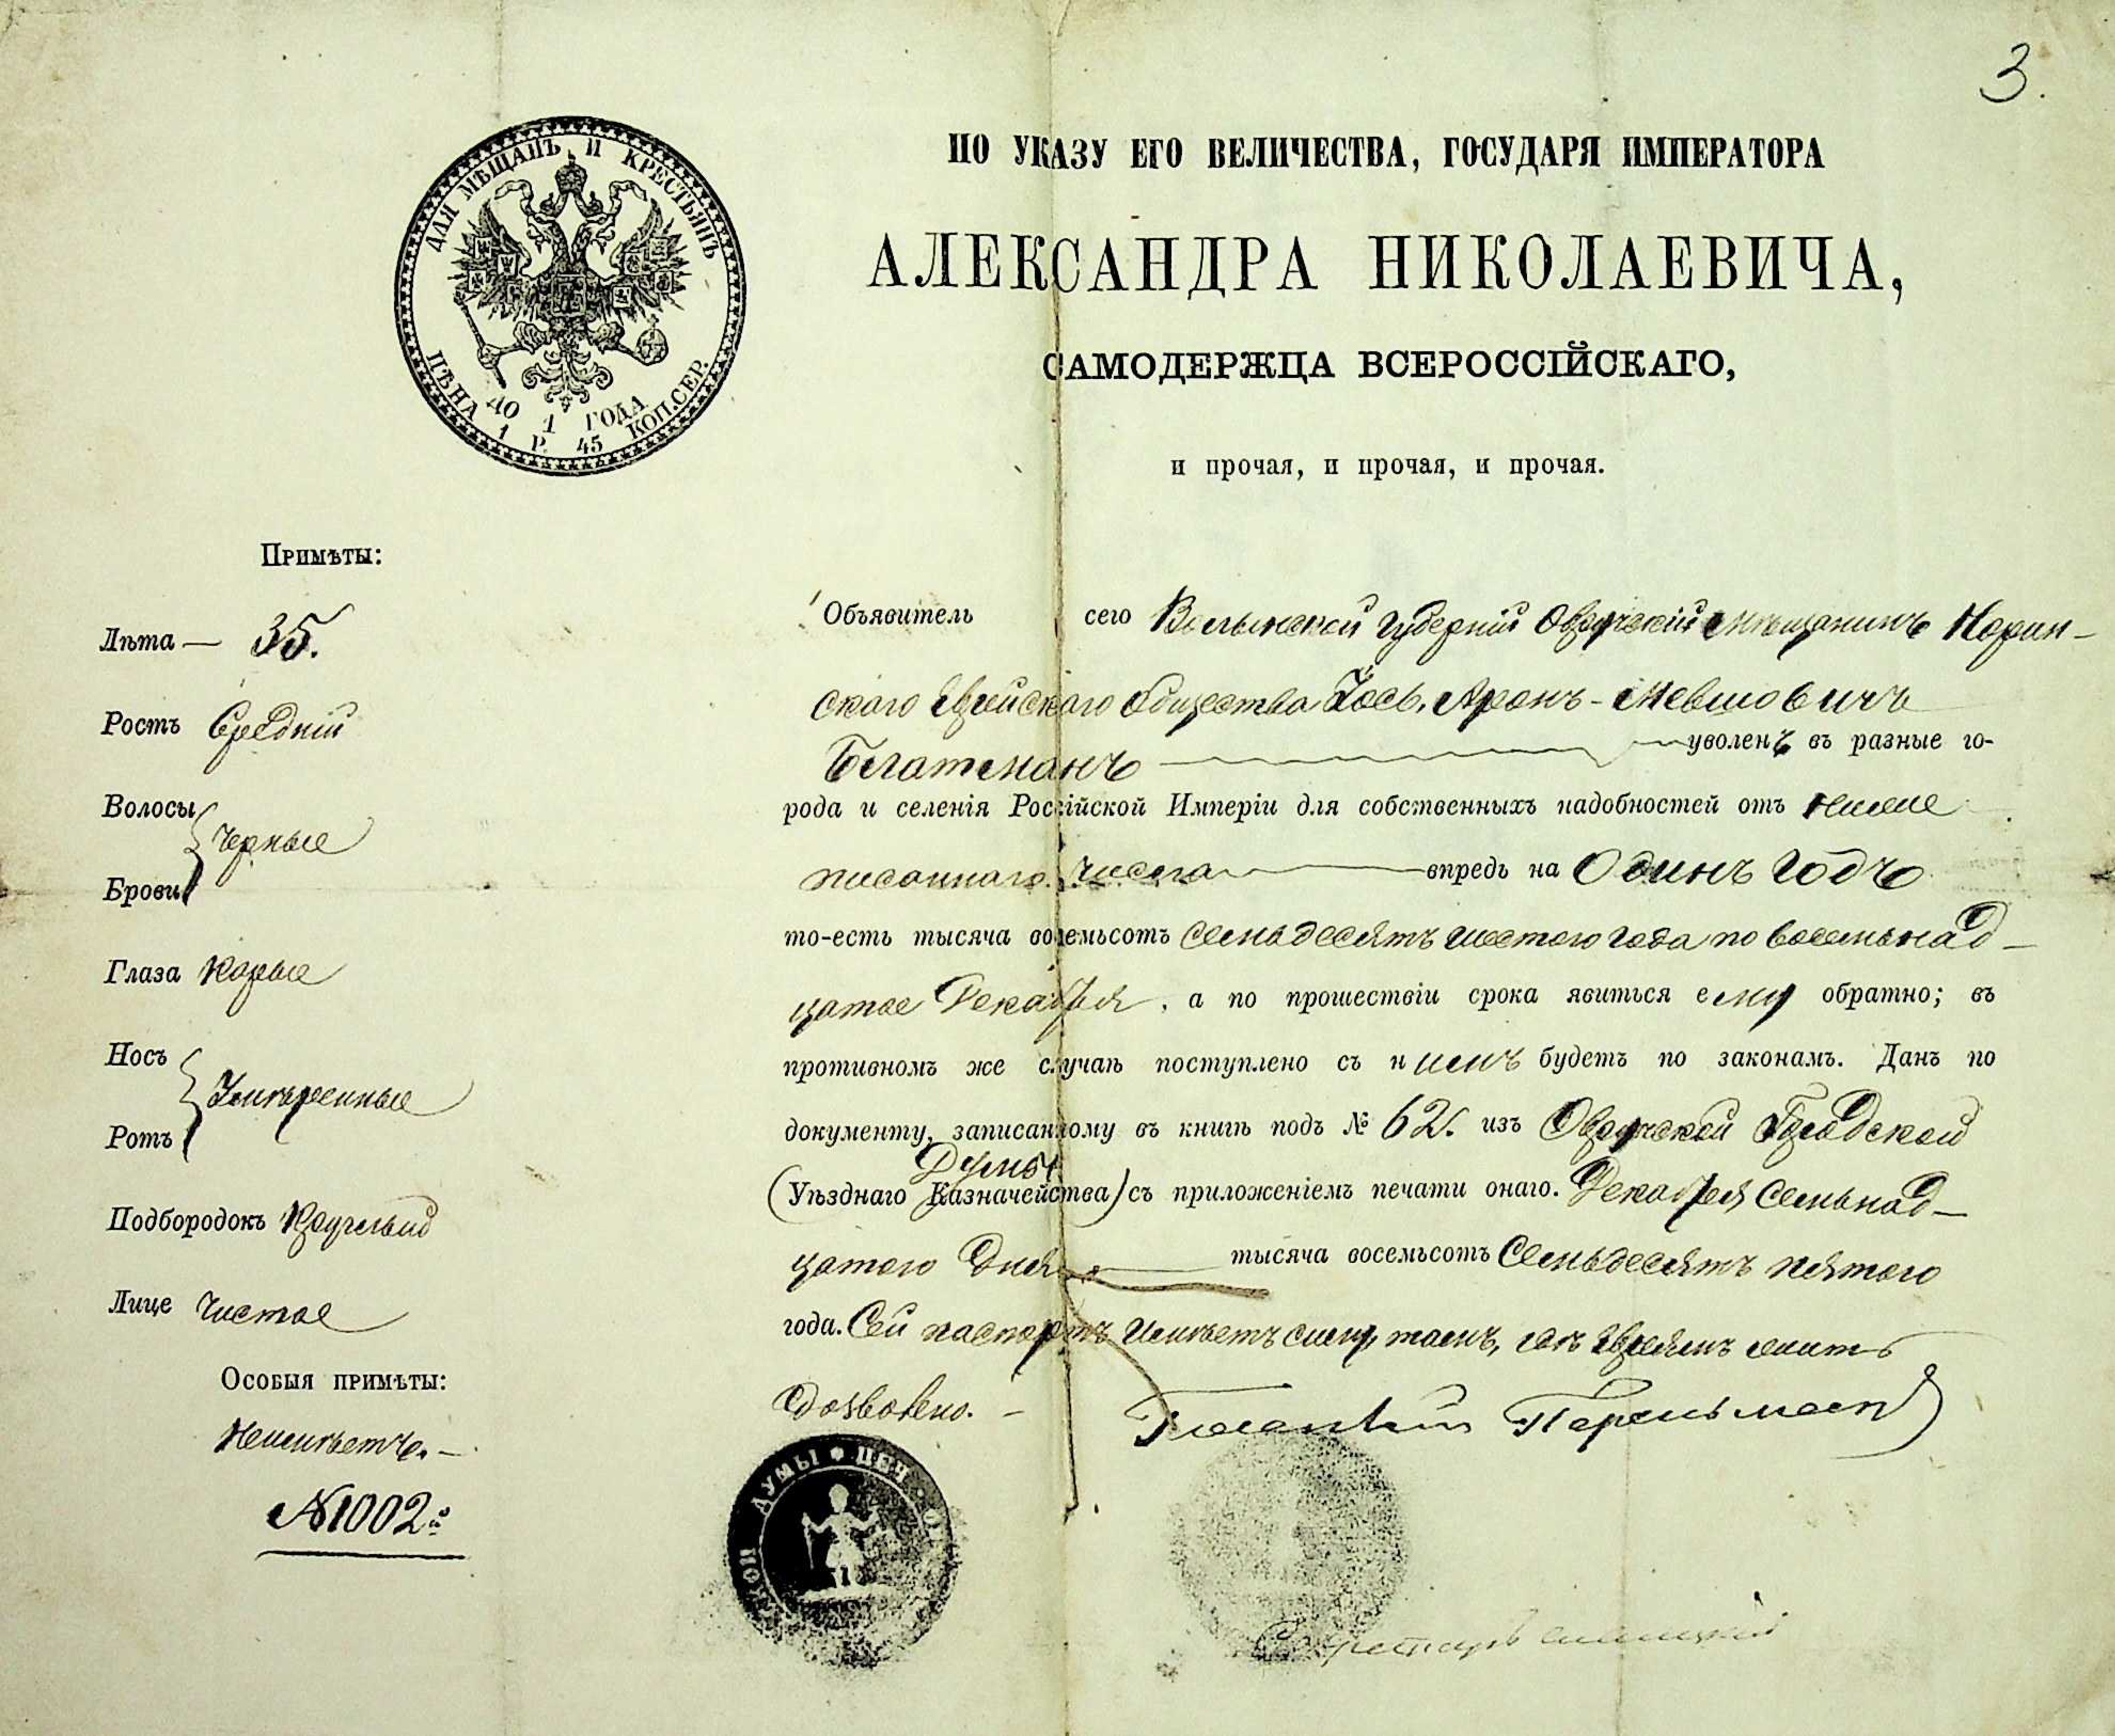 3.
ДЛЯ МѢЩАНЪ И КРЕСТЬЯНЪ
ДО 1 ГОДА
ЦѢНА 1 Р. 45 КОП.СЕР.
ПО УКАЗУ ЕГО ВЕЛИЧЕСТВА, ГОСУДАРЯ ИМПЕРАТОРА
АЛЕКСАНДРА НИКОЛАЕВИЧА,
САМОДЕРЖЦА ВСЕРОССІЙСКАГО,
и прочая, и прочая, и прочая.
Примѣты:
Лѣта — 35.
Ростъ Средній
Волосы
Черные
Брови
Глаза Карые
Носъ
Умѣренные
Ротъ
Подбородокъ Круглый
Лице Чистое
Особыя примѣты:
Неимѣетъ. —
№ 1002й
Объявитель сего Волынской Губерніи Овручскій мѣщанинъ Норин-
скаго Еврейскаго Общества Іось, Аронъ-Мевшовичъ
уволенъ въ разные го-
рода и селенія Россійской Имперіи для собственныхъ надобностей отъ ниже
писаннаго числа впредь на Одинъ Годъ
то-есть тысяча восемьсотъ семьдесятъ шестого года по восемнад-
цатое Декабря, а по прошествіи срока явиться ему обратно; въ
противномъ же случаѣ поступлено съ нимъ будетъ по законамъ. Данъ по
документу, записанному въ книгѣ подъ № 62. изъ Овручской Градской
Думы
(Уѣзднаго Казначейства) съ приложеніемъ печати онаго. Декабря семьнад-
цатого дня тысяча восемьсотъ Семьдесятъ пятого
года. Сей паспортъ имѣетъ силу тамъ, гдѣ Евреямъ жить
дозволено. —
Гласный
ДУМЫ * ПЕЧ.
Секретарь